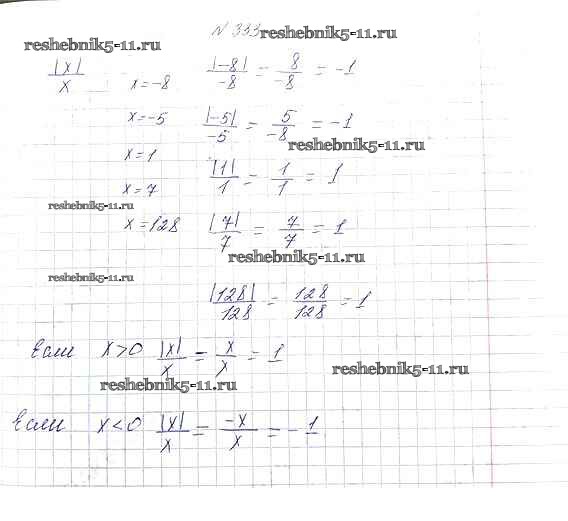 № 333 reshebnik5-11.ru
reshebnik5-11.ru
|x|/x x=-8 |-8|/-8 = 8/-8 = -1
x=-5 |-5|/-5 = 5/-8 = -1
reshebnik5-11.ru
x=1 |1|/1 = 1/1 = 1
x=7
reshebnik5-11.ru
x=128 |7|/7 = 7/7 = 1
reshebnik5-11.ru
reshebnik5-11.ru
|128|/128 = 128/128 = 1
Если x>0 |x|/x = x/x = 1
reshebnik5-11.ru
reshebnik5-11.ru
Если x<0 |x|/x = -x/x = -1
reshebnik5-11.ru